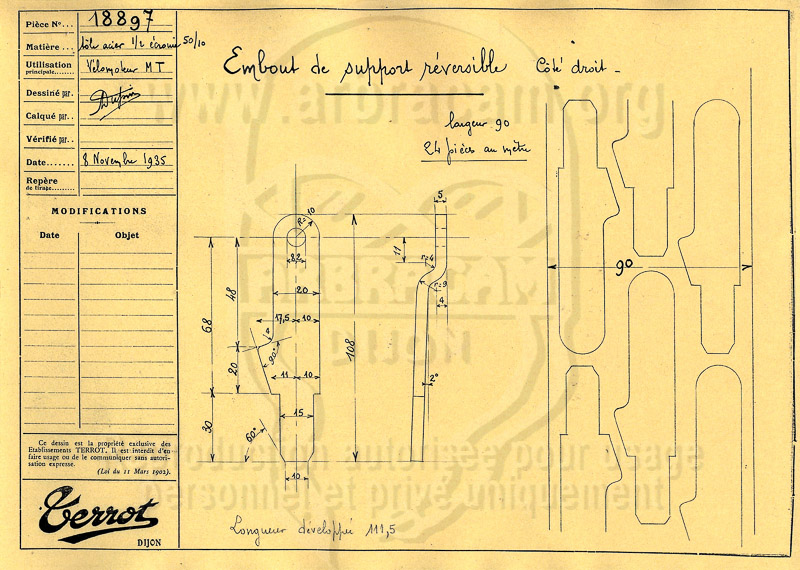 Pièce N°... 18897
Matière... tôle acier 1/2 écrouie 50/10
Utilisation
principale....... Vélomoteur MT
Dessiné par. Dupin
Calqué par..
Vérifié par..
Date.... 8 Novembre 1935
Repère
de tirage........
MODIFICATIONS
Date Objet
Ce dessin est la propriété exclusive des
Etablissements TERROT. Il est interdit d'en
faire usage ou de le communiquer sans autori-
sation expresse.
(Loi du 11 Mars 1902).
Terrot
DIJON
Embout de support réversible Côté droit -
largeur 90
24 pièces au mètre
R=10
8,2
20
17,5 10
90°
11 10
15
60°
10
48
68
20
30
108
5
11
r=4
r=9
4
2°
90
Longueur développée 111,5
www.abracam.org
FABRACAM
production autorisée pour usage
personnel et privé uniquement